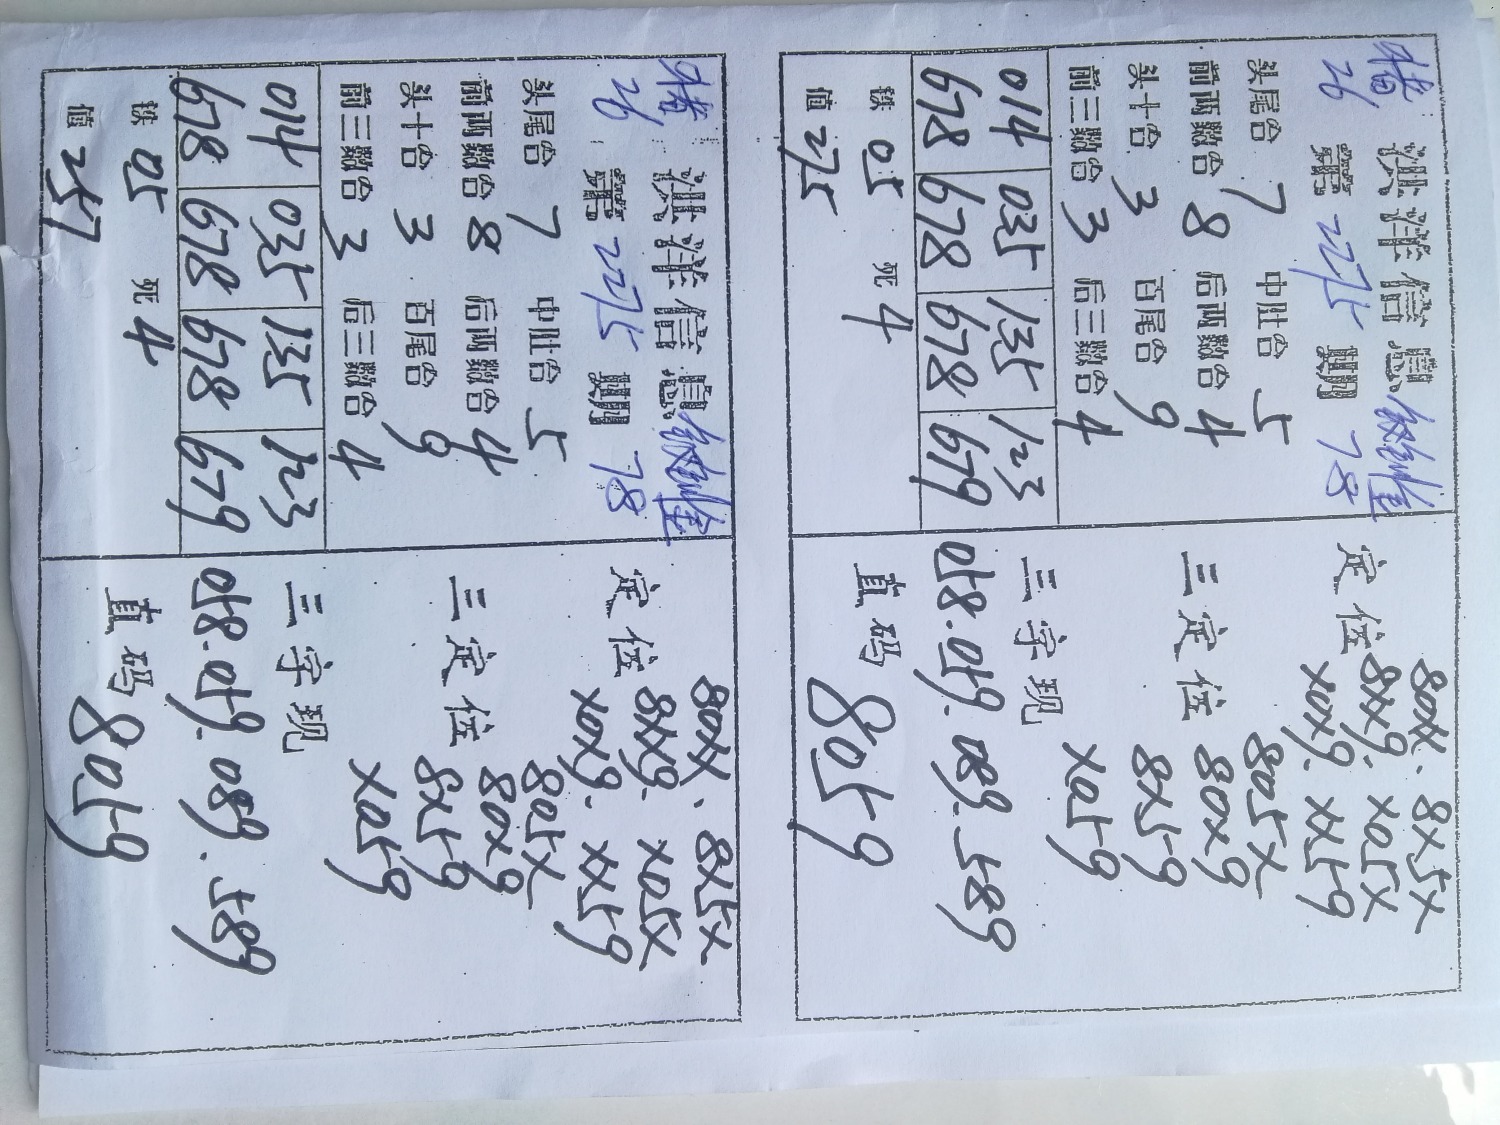 洪洋信息
26 第2275期 78
头尾合 7 中肚合 5
前两数合 8 后两数合 4
头十合 3 百尾合 9
前三数合 3 后三数合 4
014 035 135 123
678 678 678 679
铁 05 死 4
值 275
定位 80xx. 8x5x
8xx9. x05x
x0x9. xx59
三定位 805x
80x9
8x59
x059
三字现
058.059.089.589
直码 8059
洪洋信息
26 第2275期 78
头尾合 7 中肚合 5
前两数合 8 后两数合 4
头十合 3 百尾合 9
前三数合 3 后三数合 4
014 035 135 123
678 678 678 679
铁 05 死 4
值 257
定位 80xx. 8x5x
8xx9. x05x
x0x9. xx59
三定位 805x
80x9
8x59
x059
三字现
058.059.089.589
直码 8059